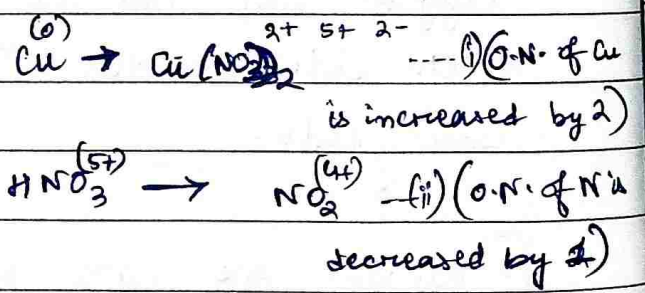 (0) 2+ 5+ 2-
Cu → Cu(NO3)2 ----- (i) (O.N. of Cu
is increased by 2)
(5+) (4+)
HNO3 → NO2 —(ii) (O.N. of N is
decreased by 1)